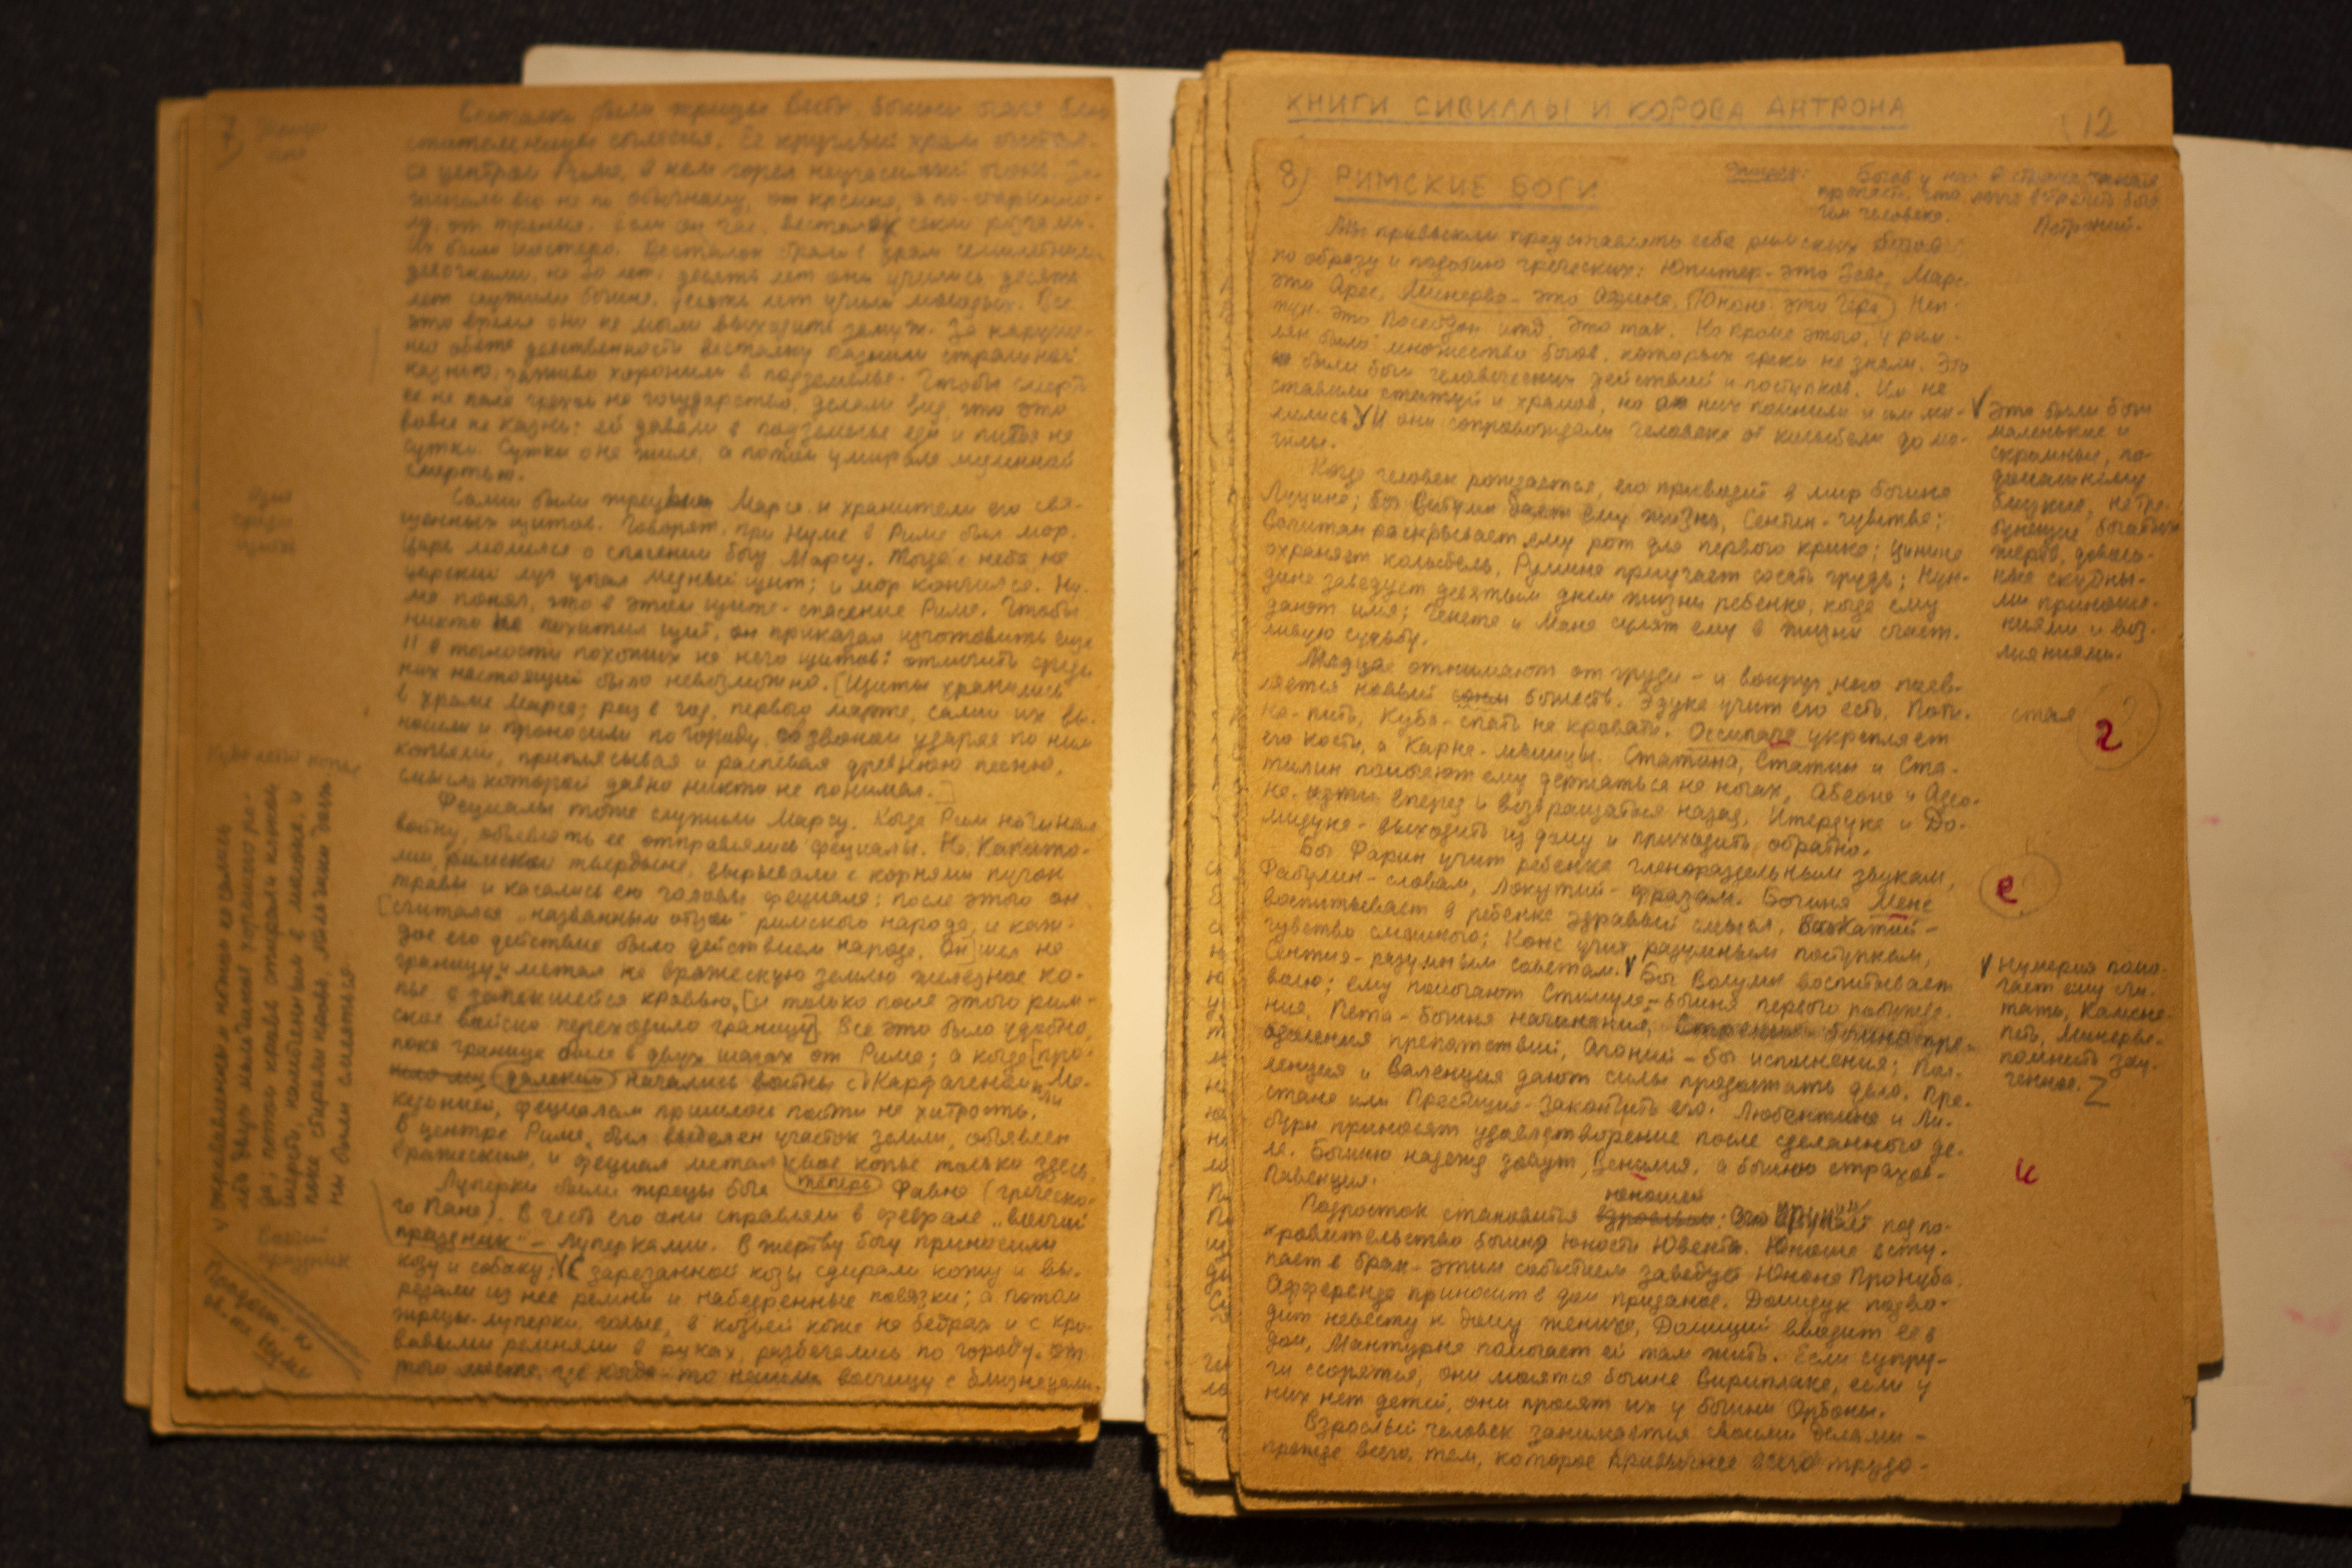 Весталки были жрицы Весты, богини очага, блю-
стательницы согласия. Ее круглый храм считал-
ся центром Рима, в нем горел неугасимый огонь. За-
жигали его не по обычному, от кремня, а по-старинно-
му, от трения. Если он гас, весталок секли розгами.
Их было шестеро. Весталок брали в храм семилетними
девочками, на 30 лет: десять лет они учились, десять
лет служили богине, десять лет учили молодых. Все
это время они не могли выходить замуж. За наруше-
ние обета девственности весталку казнили страшной
казнью: заживо хоронили в подземелье. Чтобы смерть
ее не пала грехом на государство, делали вид, что это
вовсе не казнь: ей давали в подземелье еды и питья на
сутки. Сутки она жила, а потом умирала медленной
смертью.
Салии были жрецами Марса и хранители его свя-
щенных щитов. Говорят, при Нуме в Риме был мор.
Царь молился о спасении богу Марсу. Тогда с неба на
царский луг упал медный щит; и мор кончился. Ну-
ма понял, что в этом щите - спасение Рима. Чтобы
никто не похитил щит, он приказал изготовить еще
11 в точности похожих на него щитов: отличить среди
них настоящий было невозможно. [Щиты хранились
в храме Марса; раз в год, первого марта, салии их вы-
носили и проносили по городу, со звоном ударяя по ним
копьями, приплясывая и распевая древнюю песню,
смысл которой давно никто не понимал.]
Фециалы тоже служили Марсу. Когда Рим начинал
войну, объявлять ее отправлялись фециалы. На Капито-
лии, римской твердыне, вырывали с корнями пучок
травы и касались ею головы фециала: после этого он
[считался „названным отцом" римского народа, и каж-
дое его действие было действием народа. Он] шел на
границу и метал на вражескую землю железное ко-
пье с запекшейся кровью, [и только после этого рим-
ское войско переходило границу]. Все это было удобно,
пока граница была в двух шагах от Рима; а когда [про-
далекие начались войны с Карфагеном или Ма-
кедонией, фециалам пришлось пойти на хитрость.
В центре Рима был выделен участок земли, объявлен
вражеским, и фециал метал свое копье только здесь.
теперь
Луперки были жрецы бога Фавна (греческо-
го Пана). В честь его они справляли в феврале „волчий
праздник" - луперкалии. В жертву богу приносили
козу и собаку; V С зарезанной козы сдирали кожу и вы-
резали из нее ремни и набедренные повязки; а потом
жрецы-луперки, голые, в козьей коже на бедрах и с кро-
вавыми ремнями в руках, разбегались по городу от
того места, где когда-то нашли волчицу с близнецами.
7)
Щит
среди
щитов
Кровавое копье
V окровавленным ножом касались
лба двух мальчиков хорошего ро-
да; потом кровь стирали клочком
шерсти, намоченным в молоке, и
пока стирали кровь, мальчики долж-
ны были смеяться.
Волчий
праздник
КНИГИ СИВИЛЛЫ И КОРОВА АНТРОНА
12
8) РИМСКИЕ БОГИ
Эпиграф: Богов у нас в стране такая
пропасть, что легче встретить бога,
чем человека.
Петроний.
Мы привыкли представлять себе римских богов
по образу и подобию греческих: Юпитер - это Зевс, Марс -
это Арес, Минерва - это Афина, Юнона - это Гера, Неп-
тун - это Посейдон итд. Это так. Но кроме этого, у рим-
лян было множество богов, которых греки не знали. Это
были боги человеческих действий и поступков. Им не
ставили статуй и храмов, но о них помнили и им мо-
лились. V И они сопровождали человека от колыбели до мо-
гилы.
V Это были боги
маленькие и
скромные, по-
домашнему
близкие, не тре-
бующие богатых
жертв, доволь-
ные скудны-
ми приноше-
ниями и воз-
лияниями.
Когда человек рождается, его приводит в мир богиня
Луцина; бог Витумн дает ему жизнь, Сентин - чувства;
Ватикан раскрывает ему рот для первого крика; Кунина
охраняет колыбель, Румина приучает сосать грудь; Нун-
дина заведует девятым днем жизни ребенка, когда ему
дают имя; Генета и Мана сулят ему в жизни счаст-
ливую судьбу.
Младца отнимают от груди - и вокруг него появ-
ляется новый сонм божеств. Эдука учит его есть, Поти-
на - пить, Куба - спать на кровати. Оссипага укрепляет
его кости, а Карна - мышцы. Статина, Статин и Ста-
тилин помогают ему держаться на ногах, Абеона и Адео-
на - идти вперед и возвращаться назад, Итердука и До-
мидука - выходить из дому и приходить обратно.
стая
г
Бог Фарин учит ребенка членораздельным звукам,
Фабулин - словам, Локутий - фразам. Богиня Мене
воспитывает в ребенке здравый смысл, Волкатий -
чувство смешного; Конс учит разумным поступкам,
Сентия - разумным советам. V Бог Волумн воспитывает
волю; ему помогают Стимула - богиня первого побужде-
ния, Пета - богиня начинания, Стрения - богиня пре-
одоления препятствий, Агоний - бог исполнения; Пол-
ленция и Валенция дают силы продолжать дело, Пре-
стана или Престиция - закончить его. Любентина и Ли-
бурн приносят удовлетворение после сделанного де-
ла. Богиню надежд зовут Венилия, а богиню страхов -
Павенция.
е
V Нумерия помо-
гает ему счи-
тать, Камена -
петь, Минерва -
помнить зау-
ченное. Z
и
Подросток становится юношей: его принимает под по-
кровительство богиня юности Ювента. Юноша всту-
пает в брак - этим событием заведует Юнона Пронуба.
Афференда приносит в дом приданое. Домидук подво-
дит невесту к дому жениха, Домиций вводит ее в
дом, Мантурна помогает ей там жить. Если супру-
ги ссорятся, они молятся богине Вириплаке, если у
них нет детей, они просят их у богини Орбоны.
Взрослый человек занимается своими делами -
прежде всего, тем, которое привычнее всего трудо-